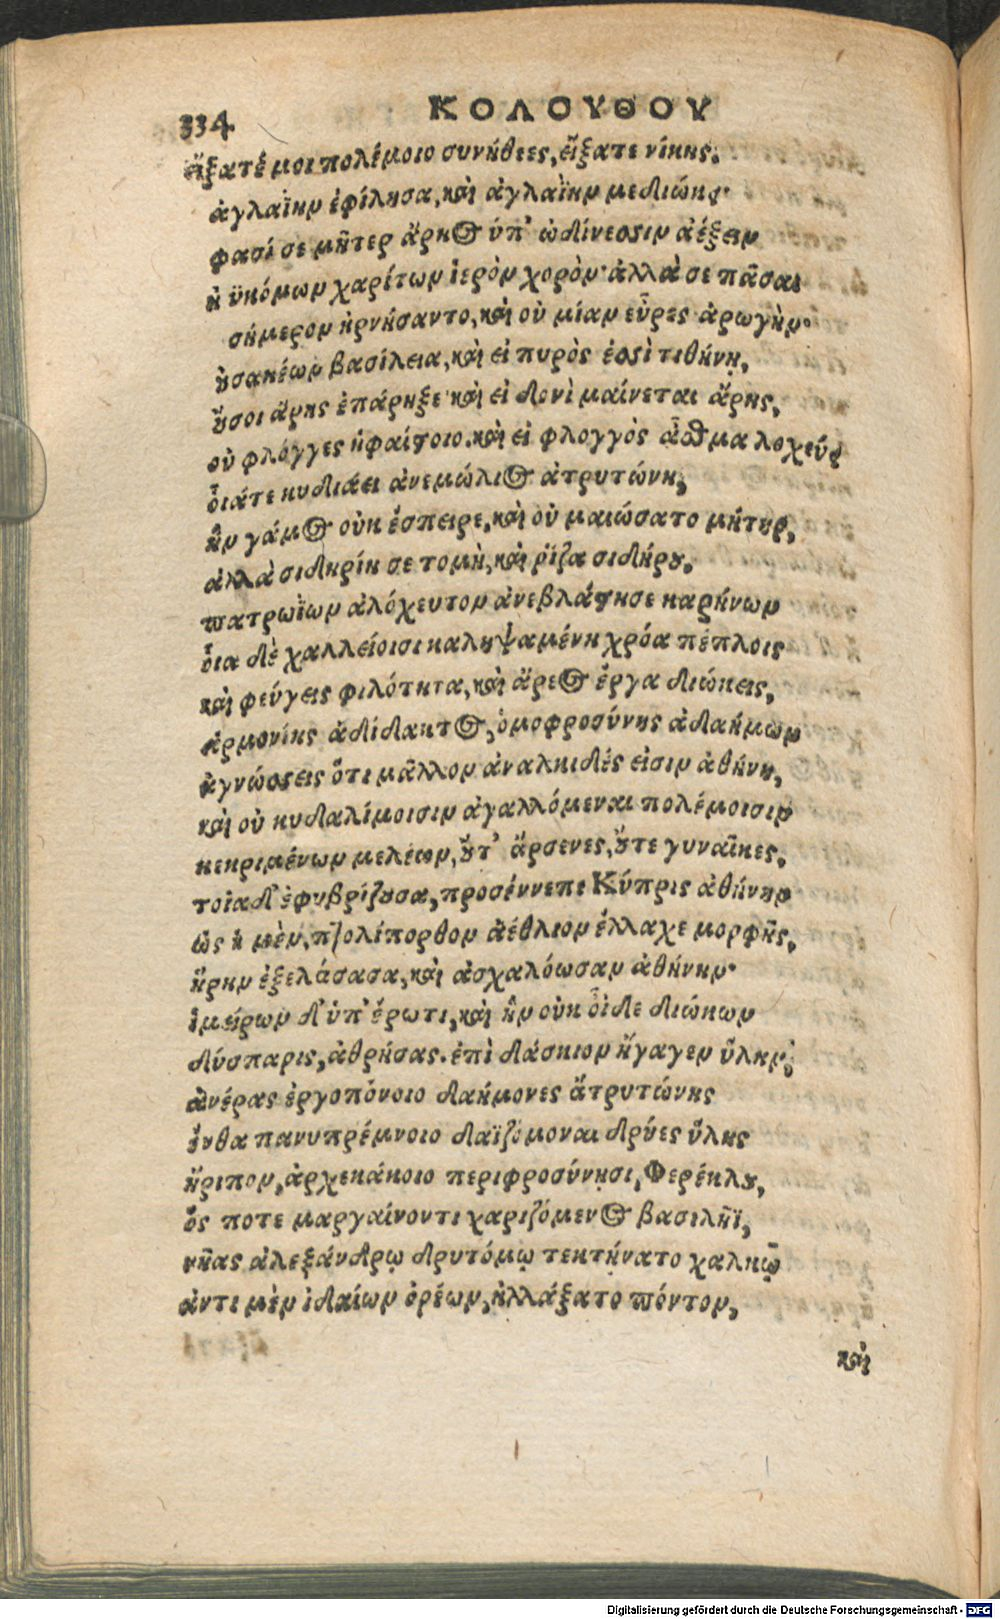 334
ΚΟΛΟΥΘΟΥ
εἴξατέ μοι πολέμοιο συνήθεες, εἴξατε νίκης.
ἀγλαΐην ἐφίλησα, καὶ ἀγλαΐην με διώκει·
φασί σε μῆτερ ἄρηος ὑπ' ὠδίνεσσιν ἀέξειν
ἠϋκόμων χαρίτων ἱερὸν χορὸν· ἀλλὰ σε πᾶσαι
σήμερον ἠρνήσαντο, καὶ οὐ μίαν εὗρες ἀρωγὴν·
οὐ σακέων βασίλεια, καὶ εἰ πυρὸς ἐσσὶ τιθήνη,
οὔ σοι ἄρης ἐπάρηξε καὶ εἰ δορὶ μαίνεται ἄρης,
οὐ φλόγγες ἡφαίστοιο. καὶ εἰ φλογγὸς ἆσθμα λοχεύει
ὁιάτε κυδιάει ἀνεμώλιος ἀτρυτώνη,
ἣν γάμος οὐκ ἔσπειρε, καὶ οὐ μαιώσατο μήτηρ,
ἀλλὰ σιδηρίη σε τομὴ, καὶ ῥίζα σιδήρου.
πατρωΐων ἀλόχευτον ἀνεβλάστησε καρήνων
ὅια δὲ χαλλείοισι καλυψαμένη χρόα πέπλοις
καὶ φεύγεις φιλότητα, καὶ ἄρεος ἔργα διώκεις,
ἁρμονίης ἀδίδακτος, ὁμοφροσύνης ἀδαήμων
ἀγνώσσεις ὅτι μᾶλλον ἀναλκιδές εἰσιν ἀθήνη,
καὶ οὐ κυδαλίμοισιν ἀγαλλόμεναι πολέμοισιν
κεκριμένων μελέων, οὔτ' ἄρσενες, οὔτε γυναῖκες.
τοῖα δ' ἐφυβρίζουσα, προσέννεπε Κύπρις ἀθήνην
ὣς ἡ μὲν, πτολίπορθον ἀέθλιον ἔλλαχε μορφῆς,
ἥρην ἐξελάσασα, καὶ ἀσχαλόωσαν ἀθήνην·
ἱμείρων δ' ὑπ' ἔρωτι, καὶ ἣν οὐκ ὁῖδε διώκων
δύσπαρις, ἀθρήσας. ἐπὶ δάσκιον ἤγαγεν ὕλην,
ἀνέρας ἐργοπόνοιο δαήμονες ἀτρυτώνης
ἔνθα πανυπρέμνοιο δαϊζόμοναι δρύες ὕλης
ἤριπον, ἀρχεκάκοιο περιφροσύνῃσι, Φερέκλου,
ὅς ποτε μαργαίνοντι χαριζόμενος βασιλῆϊ,
νῆας ἀλεξάνδρῳ δρυτόμῳ τεκτήνατο χαλκῷ
ἀντι μὲν ἰδαίων ὀρέων, ἠλλάξατο πόντον,
καὶ
Digitalisierung gefördert durch die Deutsche Forschungsgemeinschaft - DFG